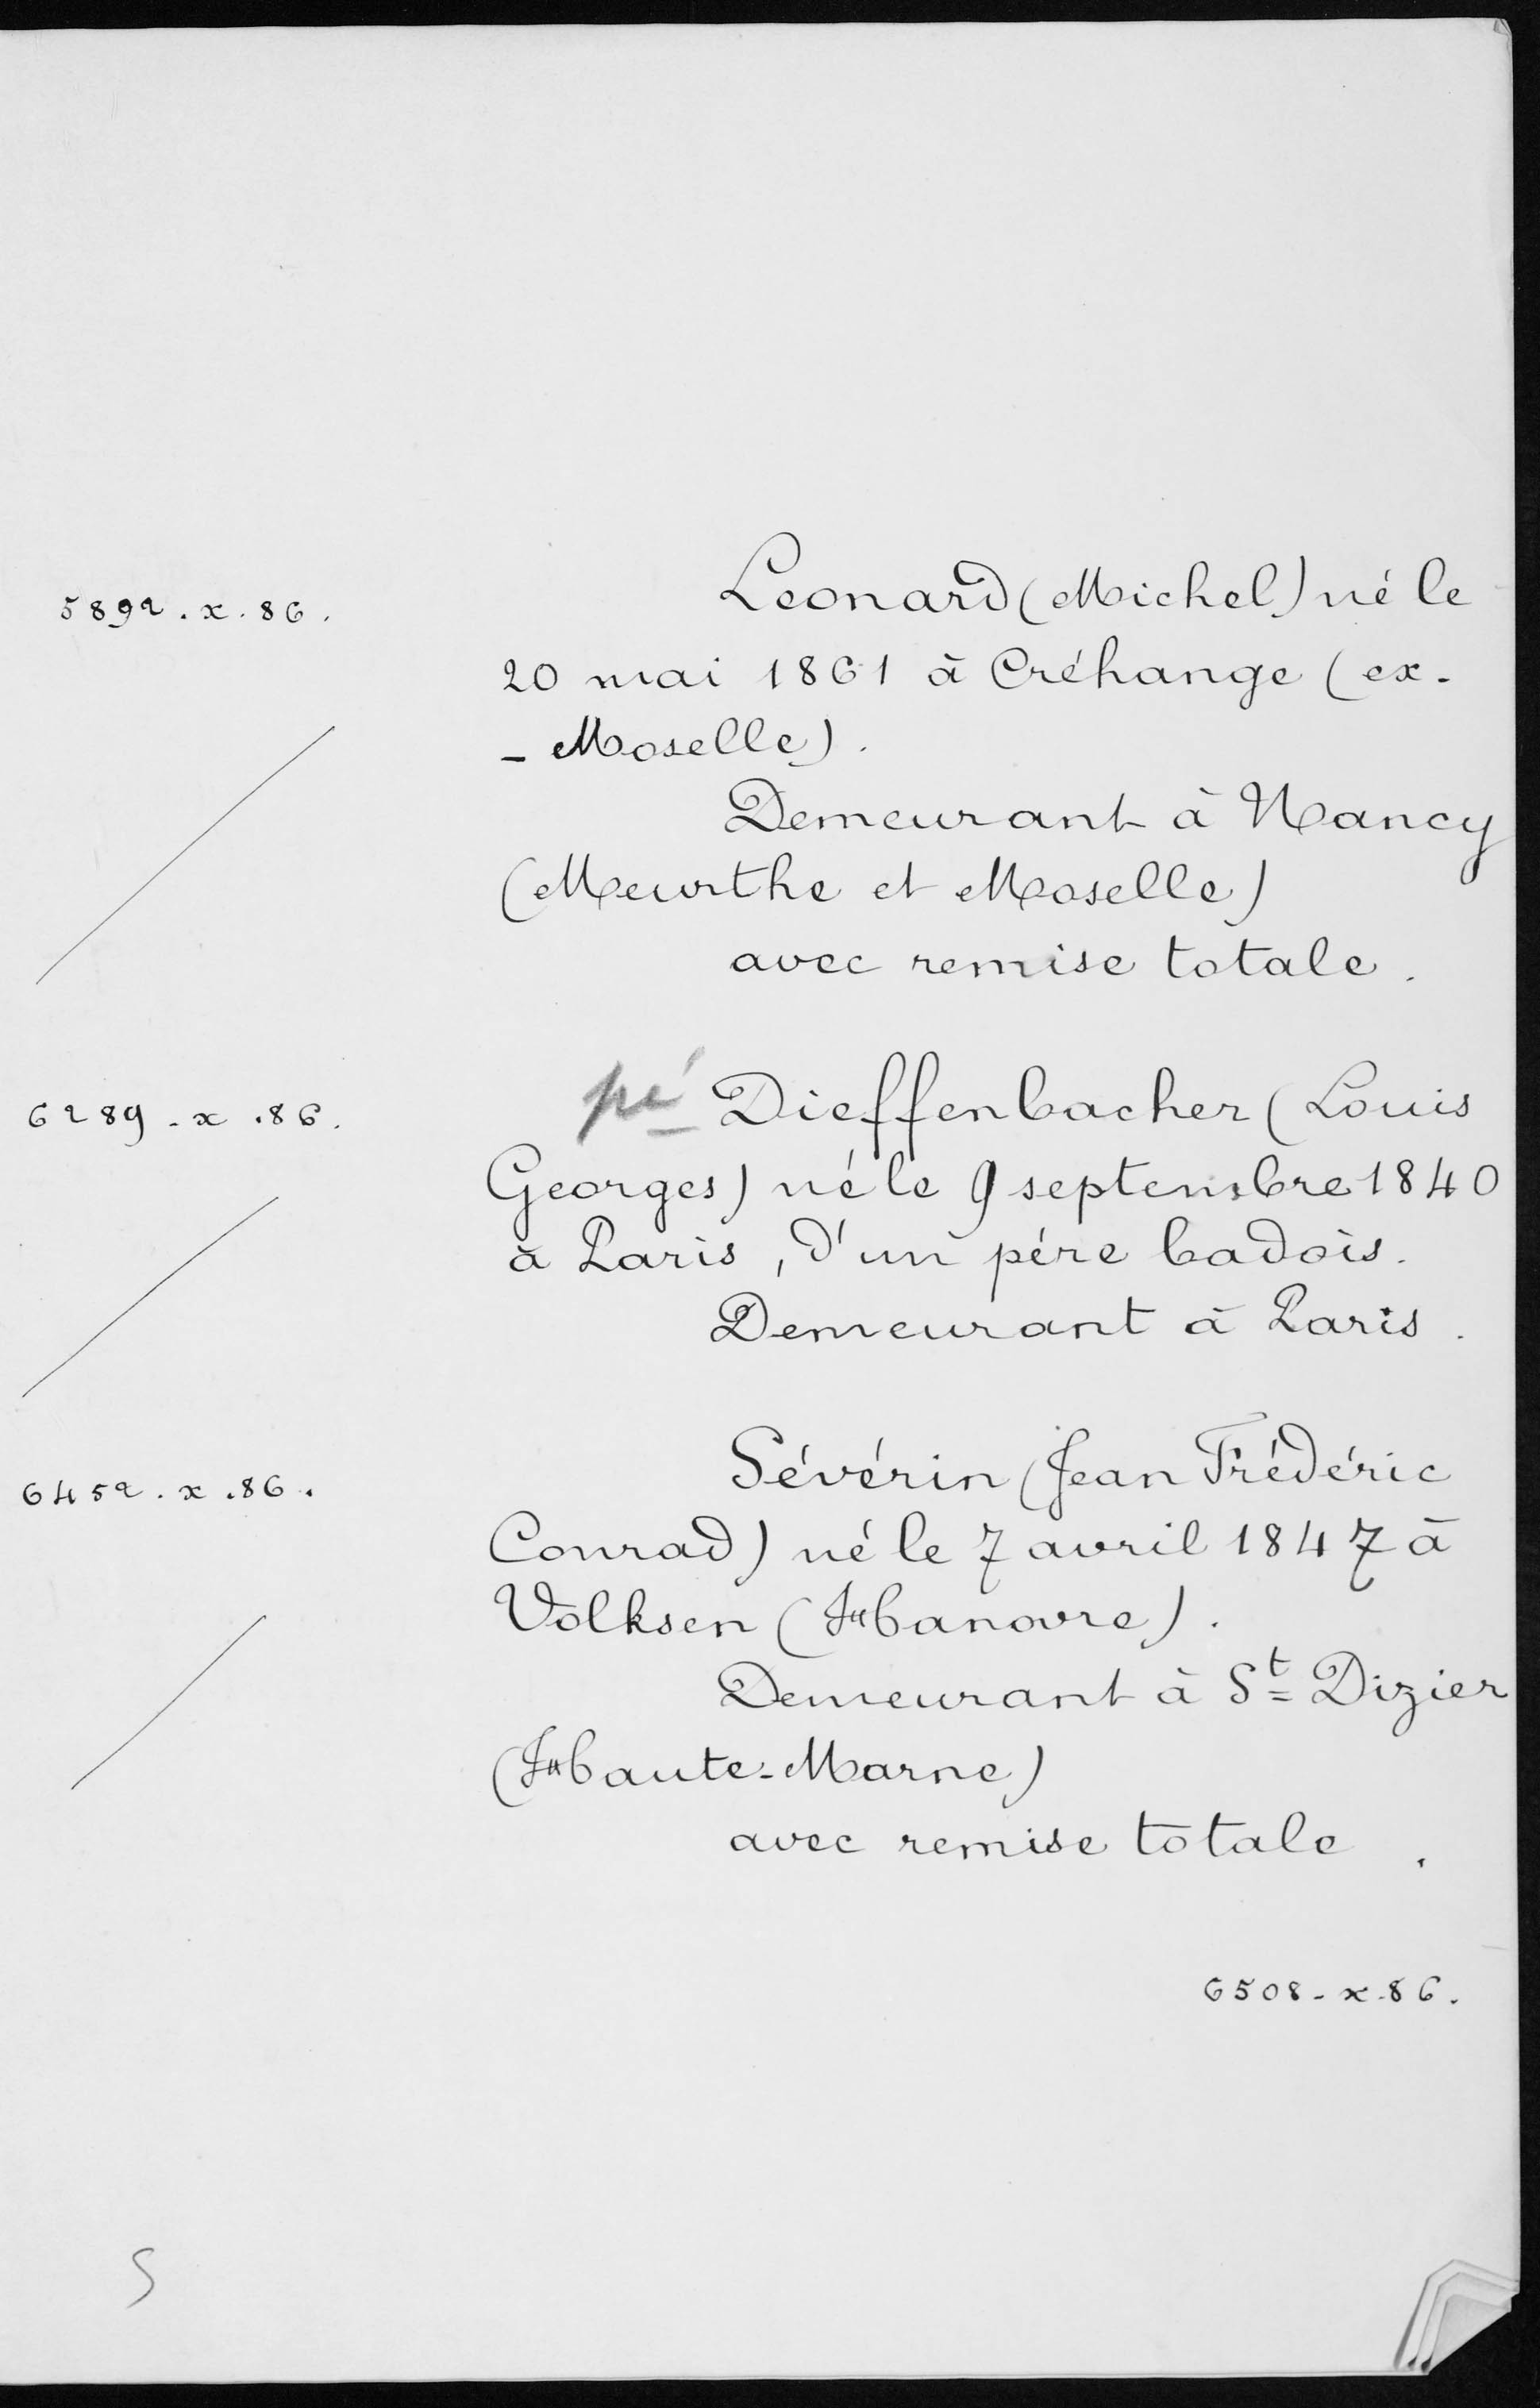 5892.x.86.
Leonard (Michel) né le
20 mai 1861 à Créhange (ex-
-Moselle).
Demeurant à Nancy
(Meurthe et Moselle)
avec remise totale.
6289-x.86.
pé Dieffenbacher (Louis
Georges) né le 9 septembre 1840
à Paris, d'un père badois.
Demeurant à Paris.
6452.x.86.
Sévérin (Jean Frédéric
Conrad) né le 7 avril 1847 à
Volksen (Hanovre).
Demeurant à St Dizier
(Haute-Marne)
avec remise totale.
6508-x-86.
5